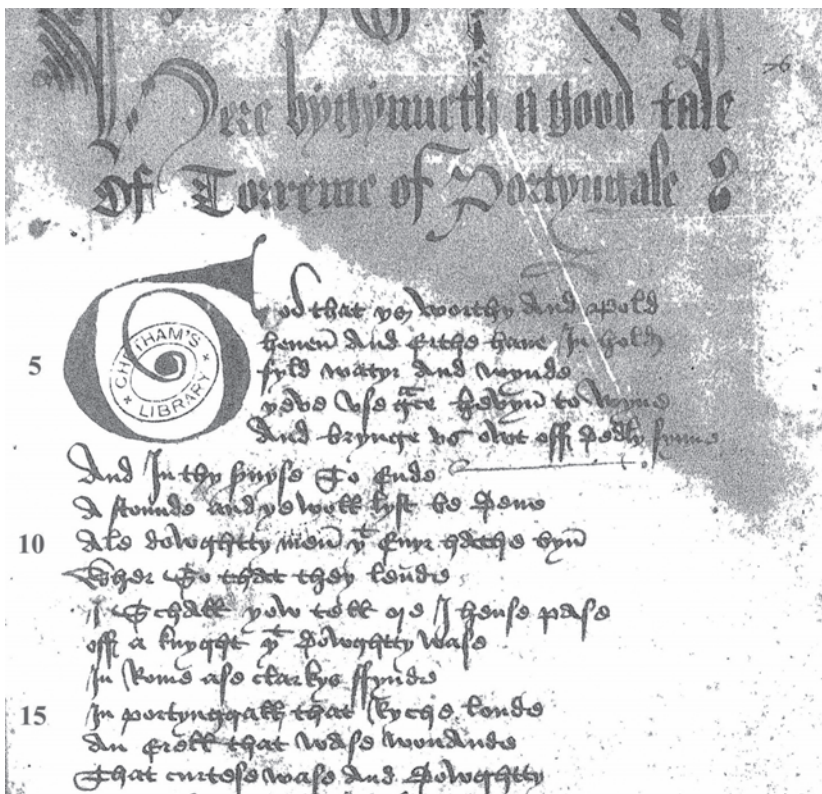 76
Here bygynneth a good tale
Of Torrente of Portyngale
God that ys worthy And Bold
heuen And Erthe haue In hold
5 fyld watyr And wynde
CHETHAM'S LIBRARY
yeve vse gce hevyn to wyne
And brynge vs owt off Dedly synne
And In thy seruyse To Ende
A stounde and ye woll lyst be Dene
10 Ale dowghtty men yt Euyr hathe byn
Wher So that they lende
I Schall yow tell ore I hense pase
off a knyght yt Dowghtty wase
In Rome ase clarkys ffynde
15 In portynggall that Ryche londe
An Erell that wase wonande
That curtese wase And Dowghtty